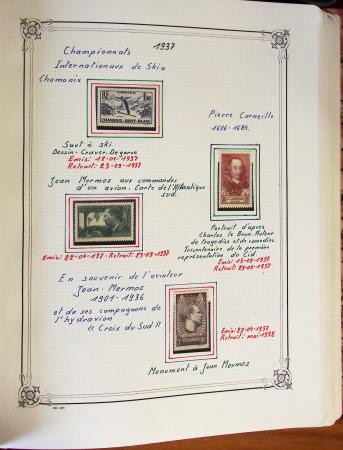 1937
Championnats
Internationaux de Ski à
Chamonix
CHAMONIX-MONT-BLANC
Pierre Corneille
1606-1684.
Saut à ski
Dessin. Graveur. Degorce
Emis: 18-01-1937
Retrait: 23-09-1937
Jean Mermoz aux commandes
d'un avion. Carte de l'Atlantique
sud.
Portrait d'après
Charles le Brun. Auteur
de tragedies et de comedies.
Tricentenaire de la première
représentation du Cid
Emis: 15-02-1937
Retrait: 23-09-1937
Emis: 22-04-1937 - Retrait: 23-09-1937
En souvenir de l'aviateur
Jean-Mermoz
1901-1936
et de ses compagnons de
l'hydravion
"Croix du Sud"
Emis: 22-04-1937
Retrait: mai-1938
Monument à Jean Mermoz